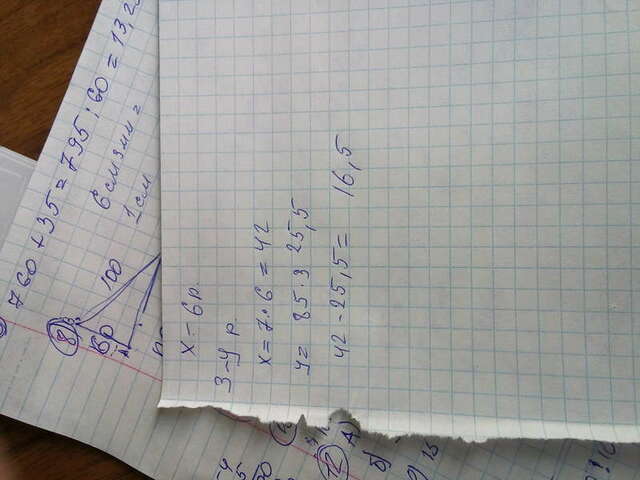 760 + 35 = 795 : 60 = 13,2
6 см 3 мм =
1 см
8
100
60
A
x - 6 р.
3 - y р.
x = 7 · 6 = 42
y = 85 · 3 25,5
42 - 25,5 = 16,5
12 А)
б)